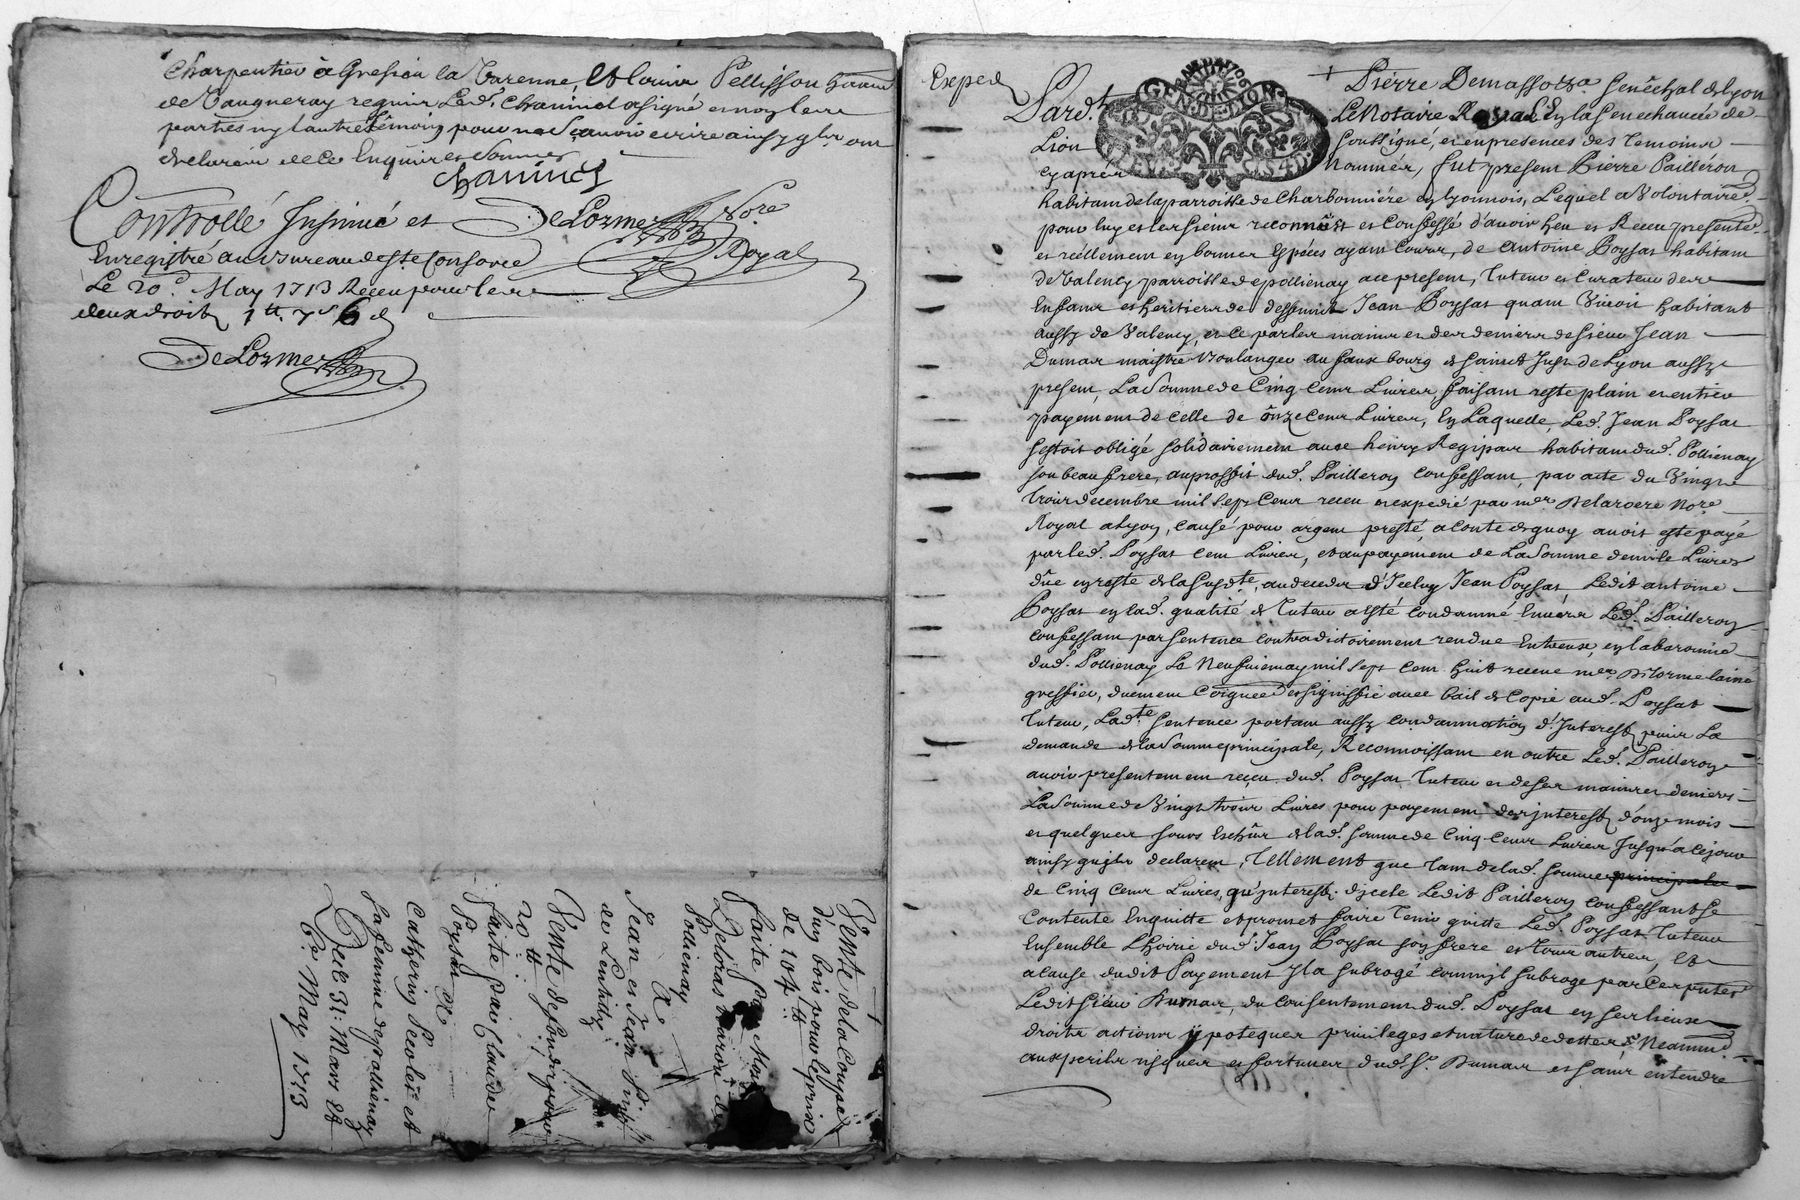 Charpentier à Gresieu la Varenne, Et louis Pellisson
de Vaugneray requis Led. Chaninel a signé
parties ny lautre témoin pour ne sçavoir ecrire ainsy qu'ils ont
declaré de ce Enquis et sommes
Chaninel
Controllé Insinué et
DeLorme Nore Royal
Enregistré au Bureau de
Le 20e May 1713 Receu pour les
deux droits 1tt 7s 6d
DeLorme
Vente de la Coupe
d'un bois pour le prix
de 104tt
faite par
Dejoras baron de
Pollienay
A
Jean et Jean
de Lentilly
Vente de fond pour
20tt
faite par Claude
Poysat et
Catherin et
sa femme de pollienay
Des 31 Mars et
May 1713
Exped
GEN DE LYON
Pardt Pierre Demassora Senéchal de lyon
Le Notaire Royal En la Senechaucée de
Lion soussigné, et en presences des temoins
cy apres Nommés, fut present Pierre Pailleron
habitant de la parroisse de Charbonniére en lyonnois, Lequel a Volontaire
pour luy et les siens reconnust et Confessé d'avoir heu et Receu presente
et réellement en bonnes Espéces ayant Cours, de Antoine Poysat habitant
de Valency parroisse de pollienay ace present, tuteur et Curateur des
Enfans et heritiers de deffunct Jean Poysat quant Vivoit habitant
aussy de Valency, et ce par les mains et des deniers de sieur Jean
Dumas maistre Boulanger au faux bourg de sainct Just de Lyon aussy
present, La Somme de Cinq Cens Livres, faisant reste plain et entier
payement de celle de ônze Cens Livres, En Laquelle, Led. Jean Poysat
sestoit obligé solidairement avec henry Regipas habitant dud. Pollienay
son beau frere, au proffit dud. Pailleron confessant, par acte du Vingt
trois decembre mil sept Cens receu et expedié par mer Delaroere Nore
Royal a Lyon, causé pour argent presté, a conte de quoy avoit esté payé
par led. Poysat Cent Livres, et au payement de La Somme de mile Livres
dûe en reste de la susdte, au deceds d'Iceluy Jean Poysat, Ledit antoine
Poysat en lad. qualité de tuteur a esté Condamné Envers Led. Pailleron
confessant par sentence contradictoirement rendue Entreux, en la baronnie
dud. Pollienay Le Neufviemay mil sept Cent huit receue mer Dilorme laine
greffier, duement Coignee et signiffié avec bail de Copie aud. Poysat
tuteur, Ladte Sentence portant aussy Condamnation d'Interests puis La
demande de la Somme principale, Reconnoissant en outre Led. Pailleron
avoir presentement reçeu dud. Poysat tuteur et de ses mains et deniers
La Somme de Vingt trois Livres pour payement des interests d'onze mois
et quelques jours Escheus de lad. somme de Cinq Cens Livres Jusqu'à Cejour
ainsy qu'ils declarent, tellement que tant de lad. somme principale
de Cinq Cens Livres, qu'interests d'icele Ledit Pailleron confessant se
Contente Enquitte et promet faire tenir quitte Led. Poysat tuteur
Ensemble L'hoirie dud. Jean Poysat son frere et tous autres, Et
a Cause dudit Payement Il a subrogé comm'il subroge par Ces putes
Ledit sieur Dumas, du consentement dud. Poysat en ses lieux
droits actions ÿpoteques privileges et nature de dettes, Neammd
aux perils risques et fortunes dud. Sr. Dumas et sans entendre